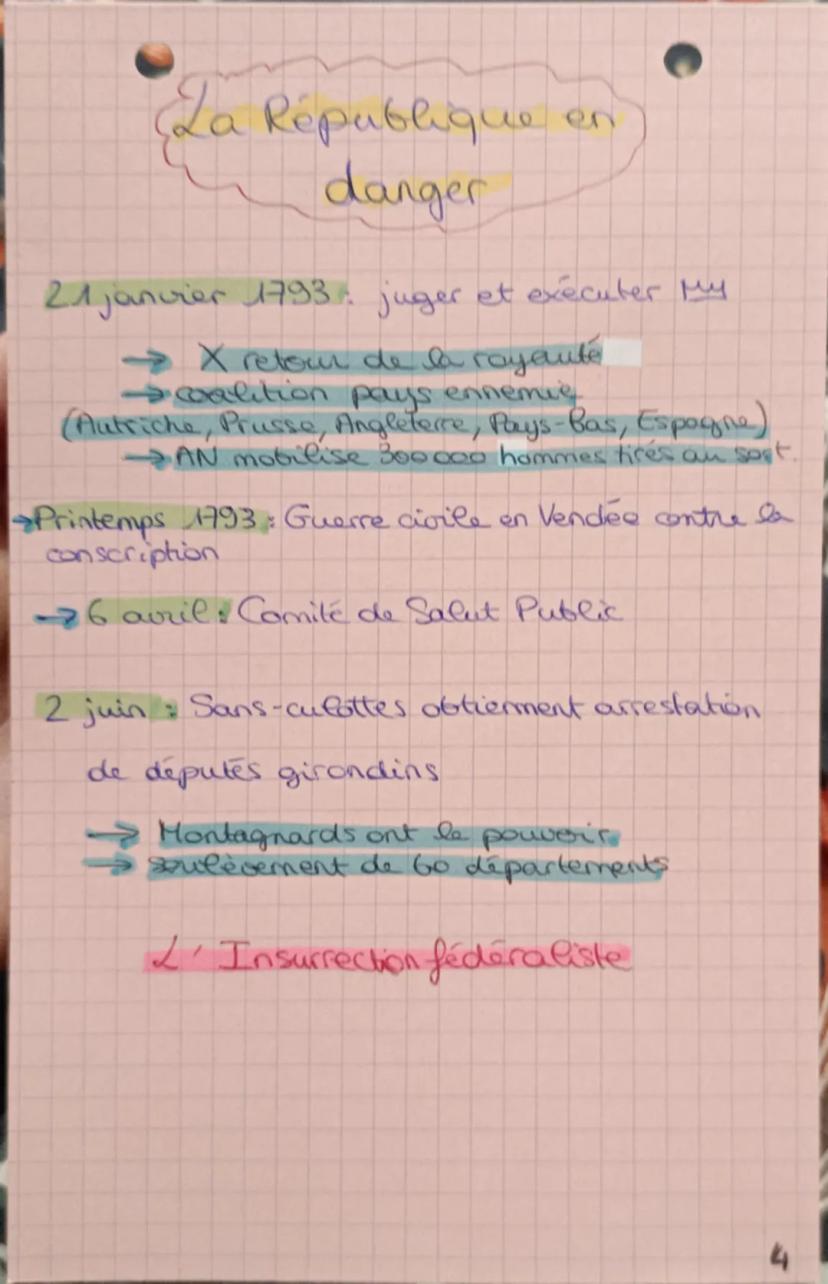 La République en
danger
21 janvier 1793 : juger et exécuter
→ X retour de la royauté
→ coalition pays ennemie
(Autriche, Prusse, Angleterre, Pays-Bas, Espagne)
→ AN mobilise 300 000 hommes tirés au sort.
→ Printemps 1793 : Guerre civile en Vendée contre la
conscription
→ 6 avril : Comité de Salut Public
2 juin : Sans-culottes obtiennent arrestation
de députés girondins
→ Montagnards ont le pouvoir
→ soulèvement de 60 départements
L'Insurrection fédéraliste
4